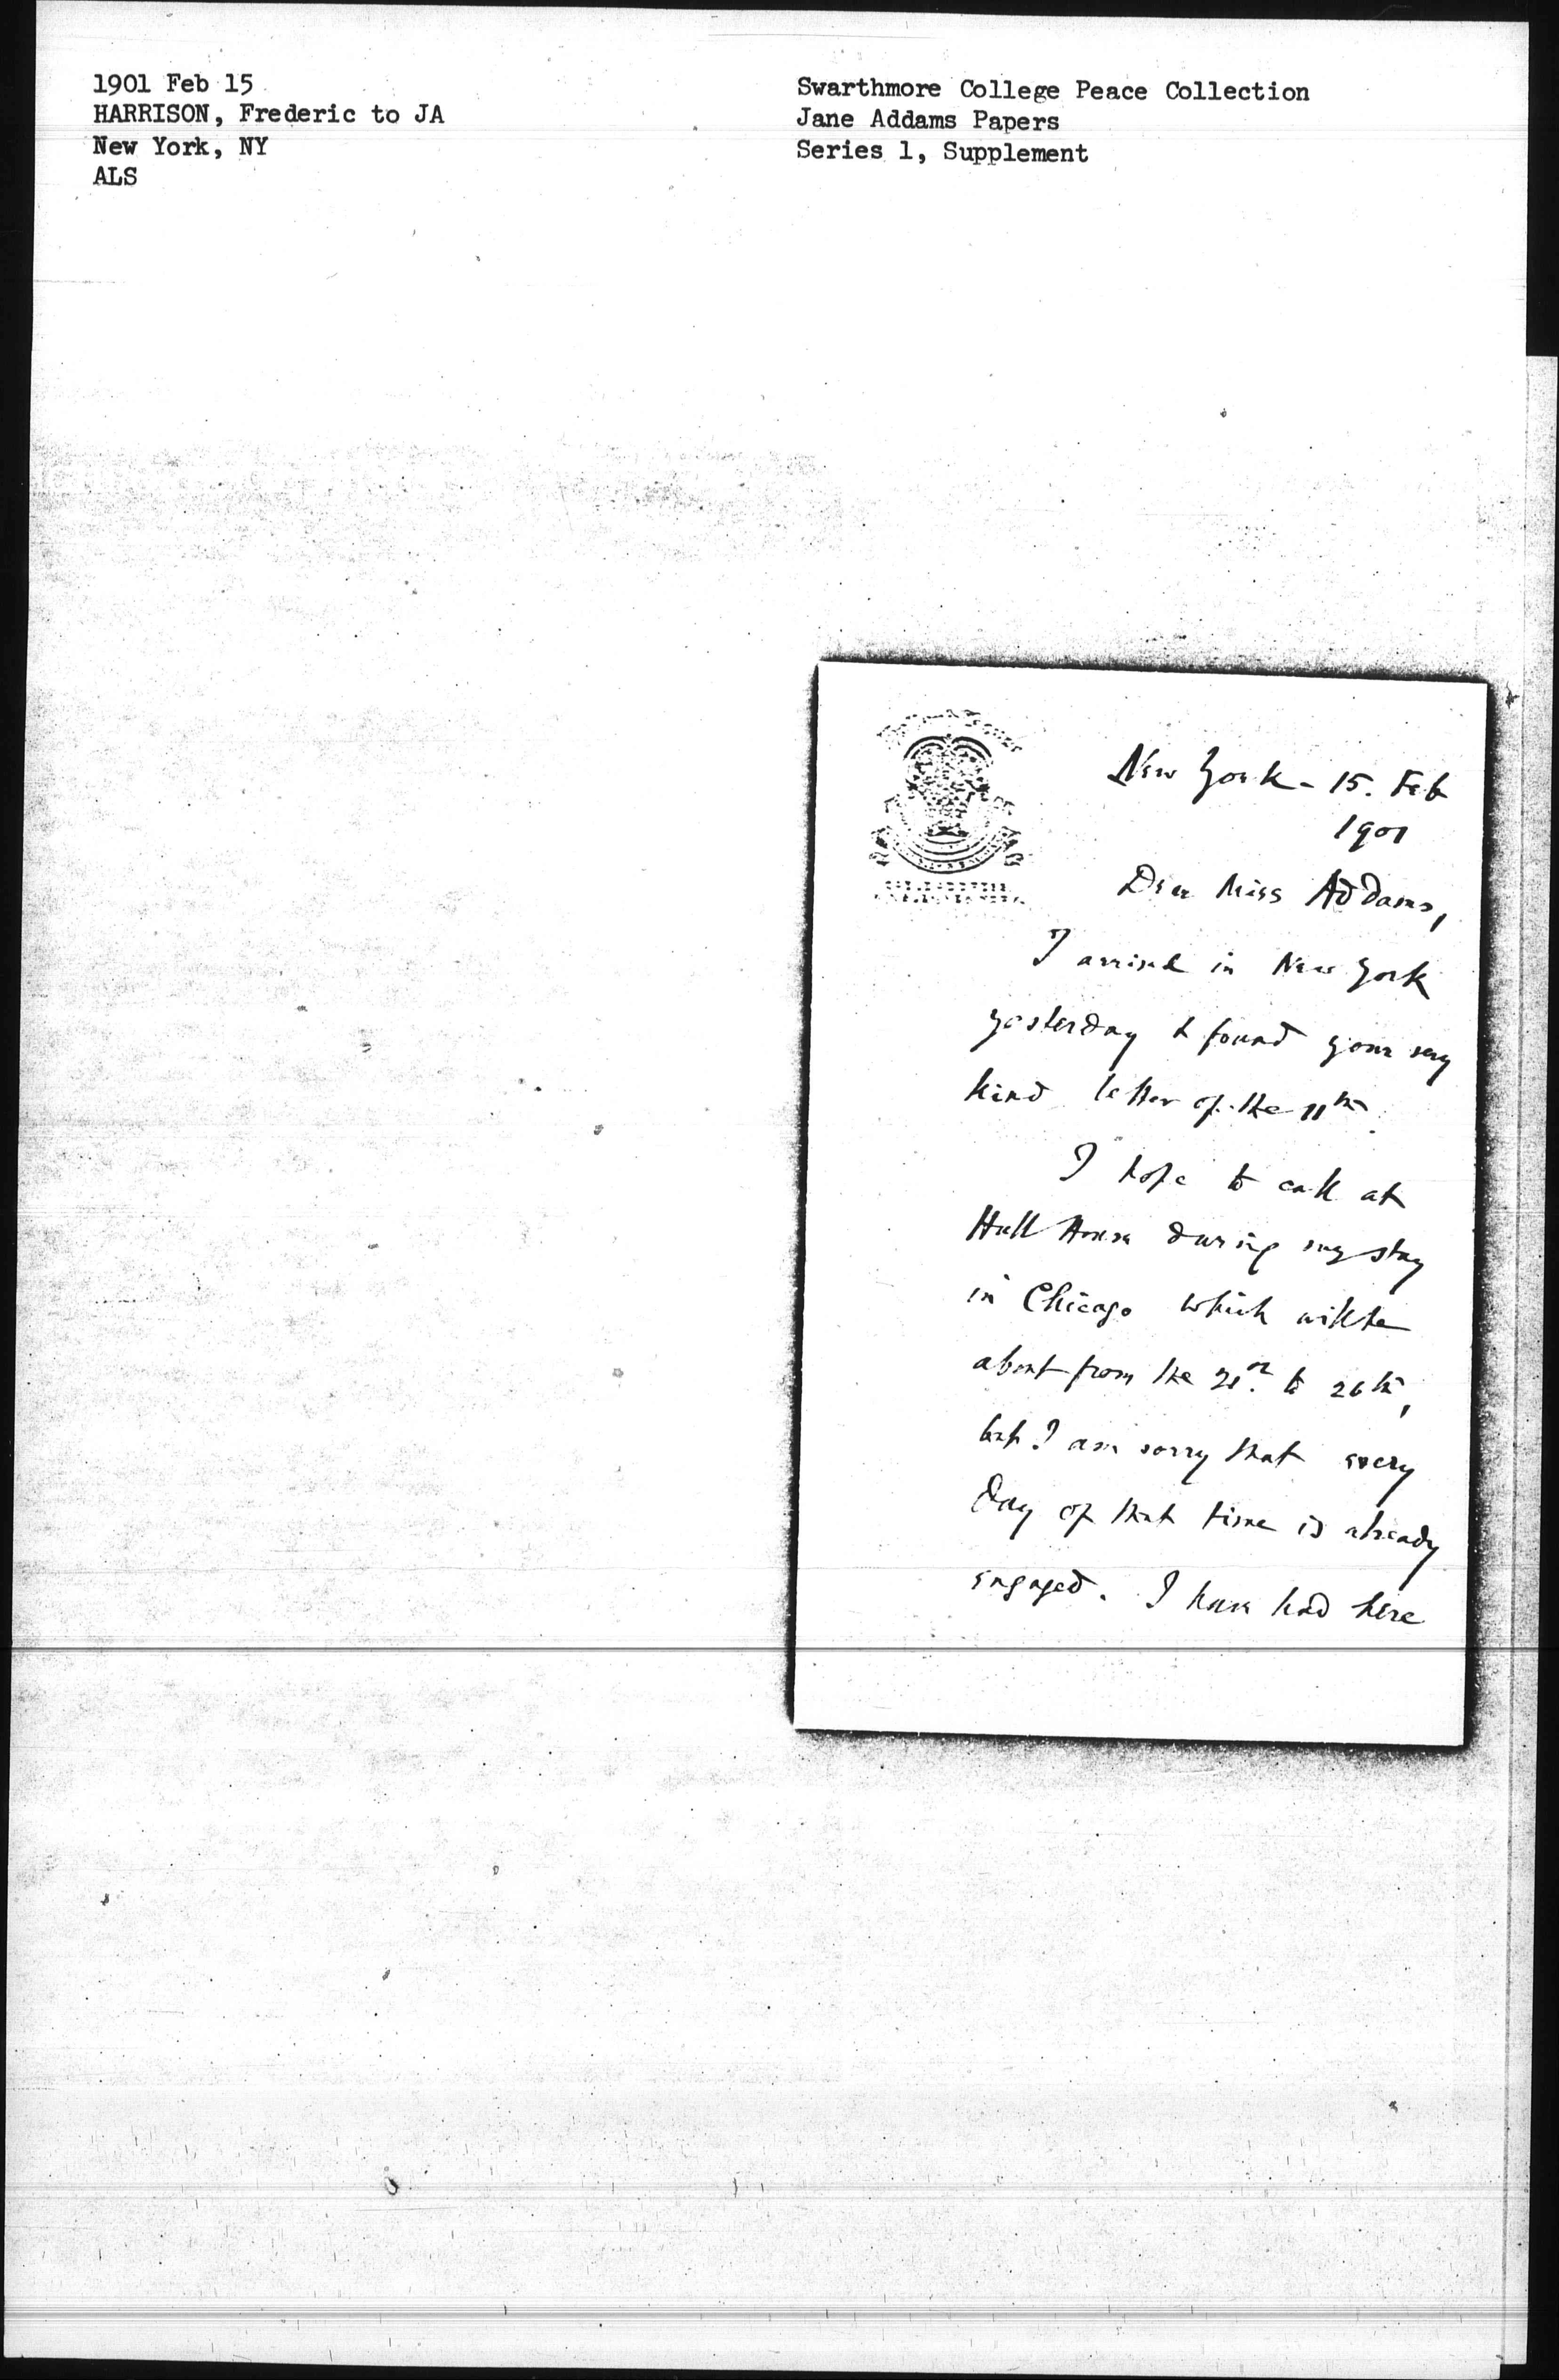 1901 Feb 15
HARRISON, Frederic to JA
New York, NY
ALS
Swarthmore College Peace Collection
Jane Addams Papers
Series 1, Supplement
New York - 15. Feb
1901
Dear Miss Addams,
I arrived in New York
yesterday & found your very
kind letter of the 11th
I hope to call at
Hull House during my stay
in Chicago which will be
about from the to 26th,
but I am sorry that every
day of that time is already
engaged. I have had here